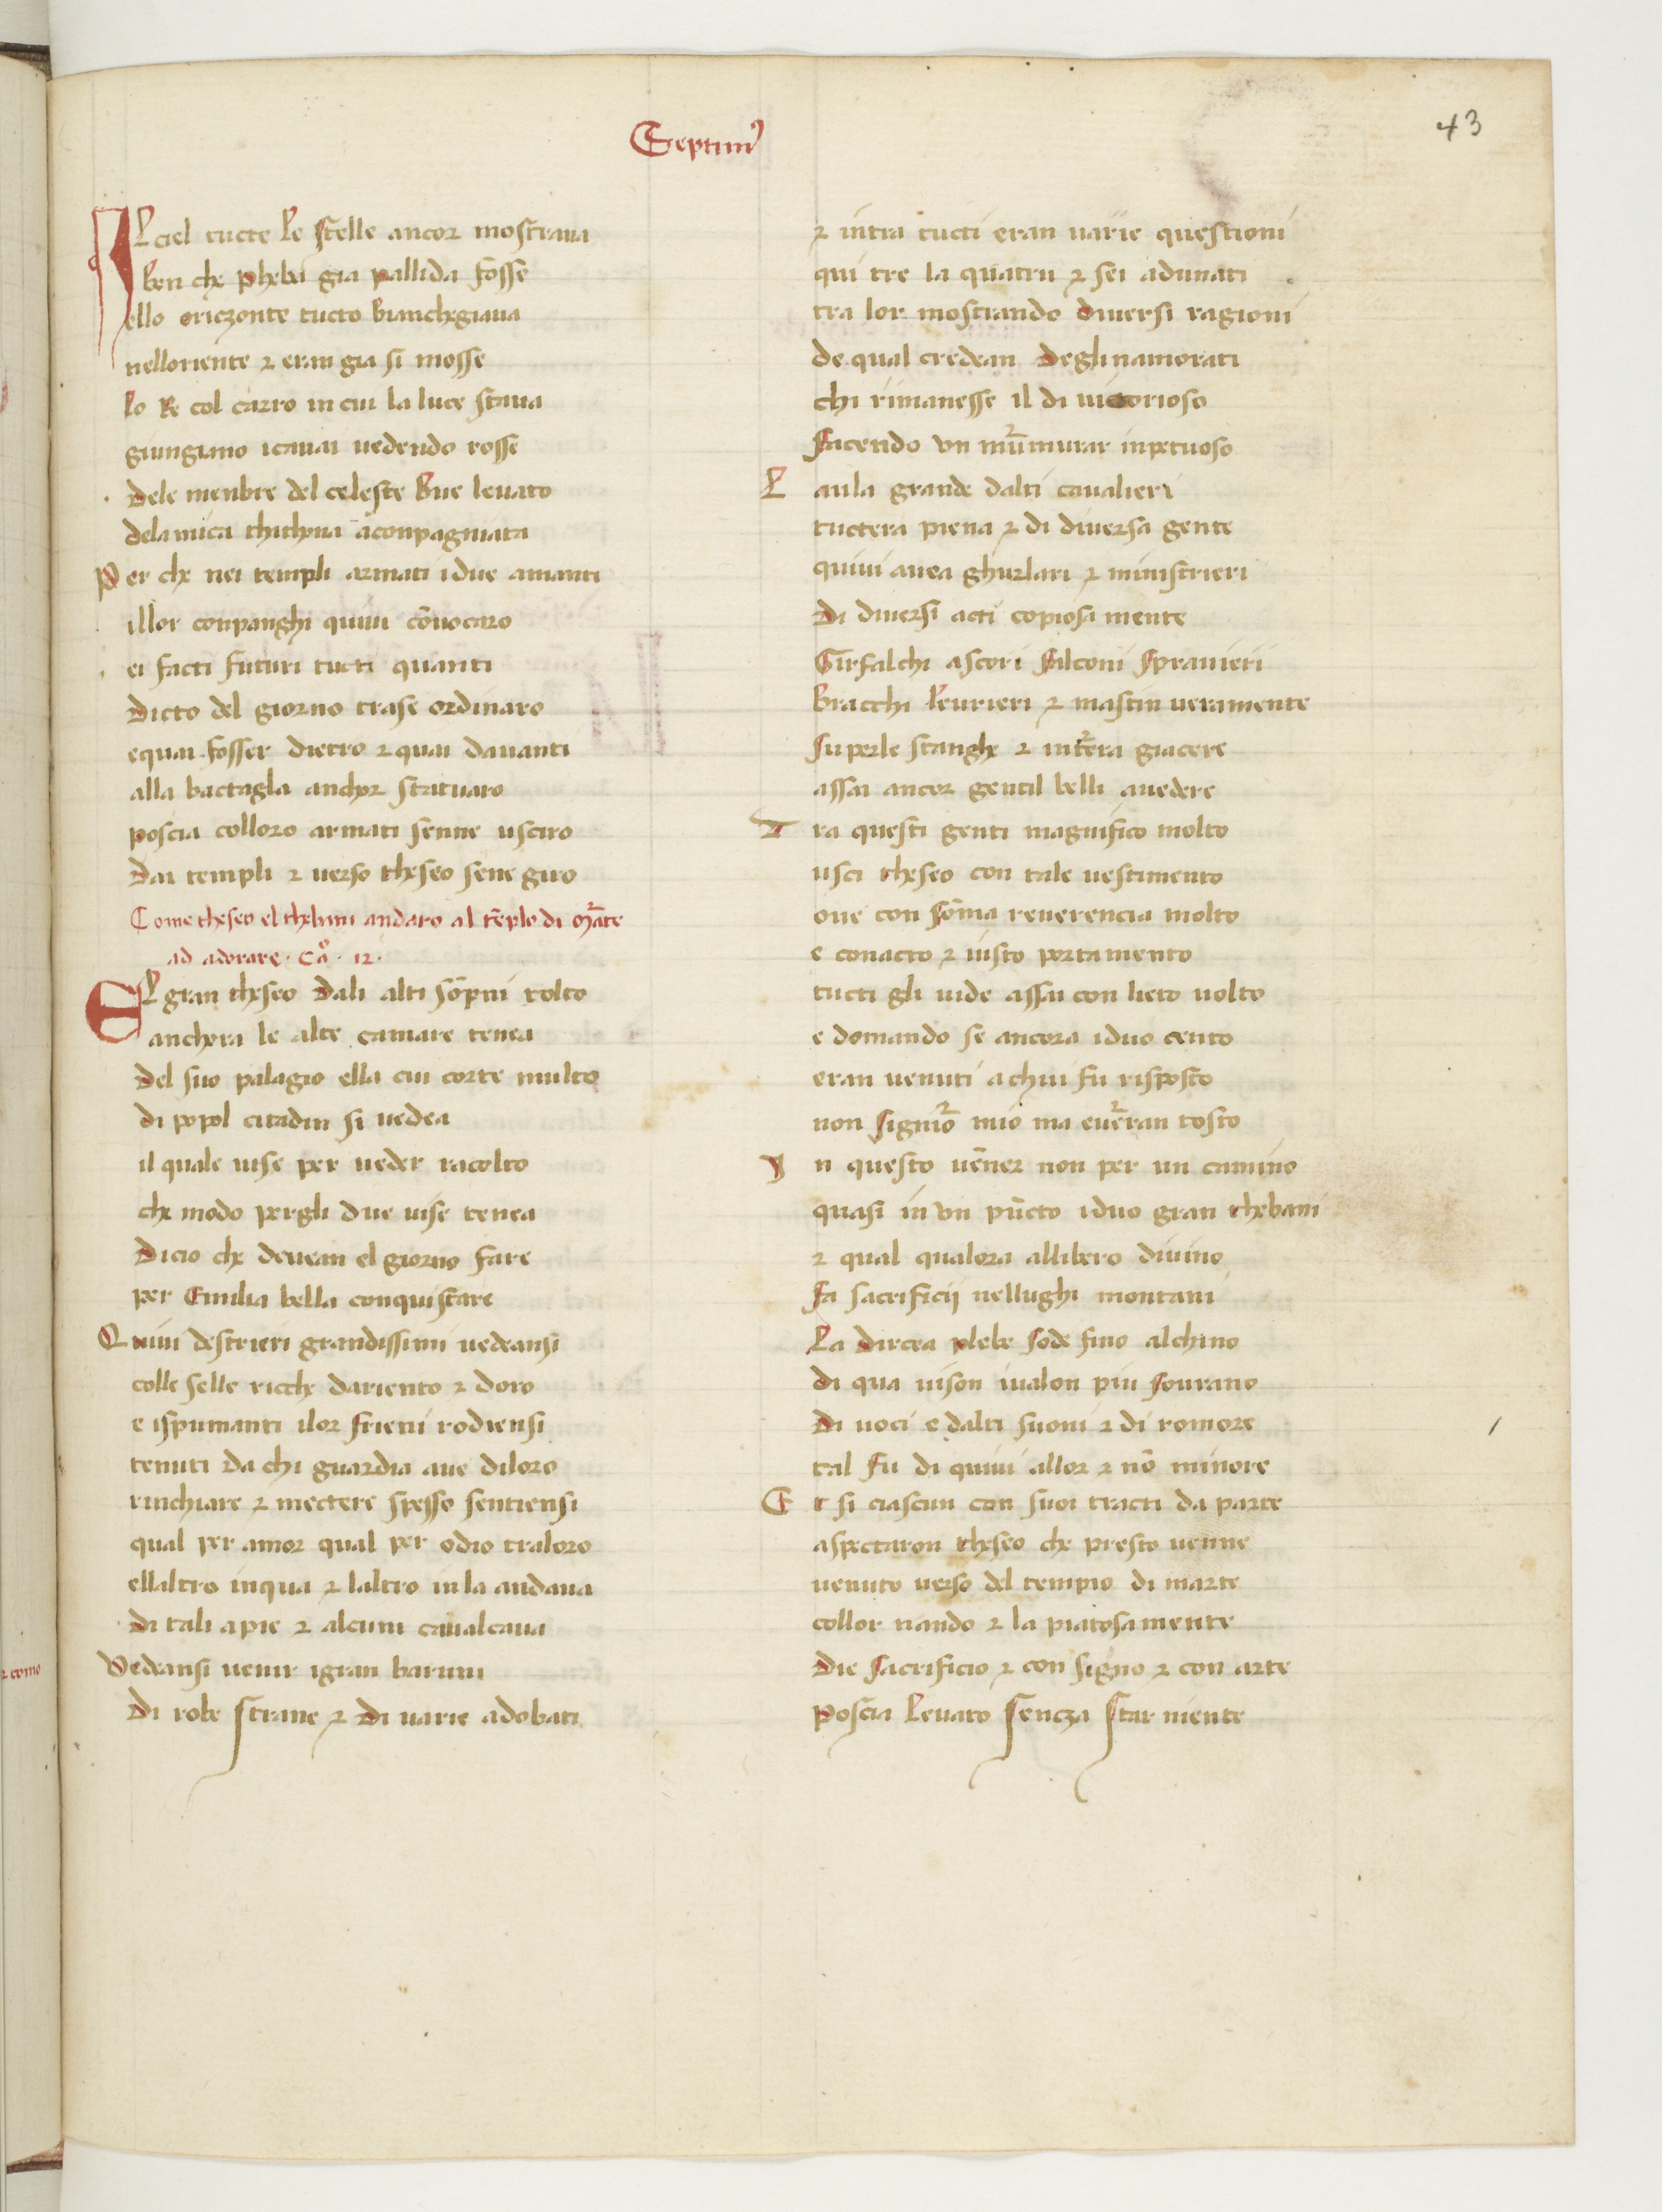 Septimꝰ
43
IL ciel tucte le stelle ancor mostraua
ben che pheba gia pallida fosse
ello oriczonte tucto branchegiaua
nelloriente ⁊ eran gia si mosse
lo Re col carro in cui la luce staua
giungiano icauai uedendo rosse
Dele menbre del celeste bue leuato
dela mica thithona aconpagniata
Per che nei templi armati idue amanti
illor conpanghi quiui cōuocaro
ei facti futuri tucti quanti
Dicto del giorno trase ordinaro
equai fosser dietro ⁊ quai dauanti
alla bactagla anchor statuaro
poscia colloro armati senne usciro
Dai templi ⁊ uerso theseo sene giro
Come theseo el thebani andaro al tēplo di Mate
ad adorare · Cāo · 12 ·
EL gran theseo Dali alti sōpni tolto
anchora le alte camare tenea
Del suo palagio ella cui corte multo
di popol citadin si uedea
il quale uise per ueder racolto
che modo pergli due uise tenea
Dicio che deuean el giorno fare
per Emilia bella conquistare
Quiui destrieri grandissimi uedeansi
colle selle ricche dariento ⁊ doro
e ispumanti ilor frieni rodiensi
tenuti da chi guardia aue diloro
rinchiare ⁊ mectere spesso sentiensi
qual per amor qual per odio traloro
ellaltro inqua ⁊ laltro inla andaua
di tali apie ⁊ alcuni caualcaua
Vedeansi uenir igran baruni
Di robe strane ⁊ Di uarie adobati
⁊ intra tucti eran uarie questioni
qui tre la quatru ⁊ sei adunati
tra lor mostrando diuersi ragioni
de qual credean Deglinamorati
chi rimanesse il di uictorioso
Facendo vn murmurar inpetuoso
L aula grande dalti caualieri
tuctera piena ⁊ di diuersa gente
quiui auea ghurlari ⁊ ministrieri
Di diuersi acti copiosa mente
Girfalchi astori falconi sprauieri
bracchi leurieri ⁊ mastin ueramente
su perle stanghe ⁊ intera giacere
assai ancor gentil belli auedere
T ra questi genti magnifico molto
usci theseo con tale uestimento
oue con sōma reuerencia molto
e conacto ⁊ iusto portamento
tucti gli uide assai con lieto uolto
e domando se ancora iduo cento
eran uenuti achui fu risposto
non signior mio ma euerran tosto
Y n questo uēner non per un camino
quasi in vn pūcto iduo gran thebani
⁊ qual qualora allibero diuino
fa sacrificij nellughi montani
La dircea plebe sode fino alchino
di qua uison iualon piu sourano
Di uoci e dalti suoni ⁊ di romore
tal fu di quiui allor ⁊ nō minore
E t si ciascun con suoi tracti da parte
aspectaron theseo che presto uenne
uenuto uerso del tempio di marte
collor nando ⁊ la piatosamente
Die sacrificio ⁊ con signo ⁊ con arte
poscia leuato sencza star niente
⁊ como